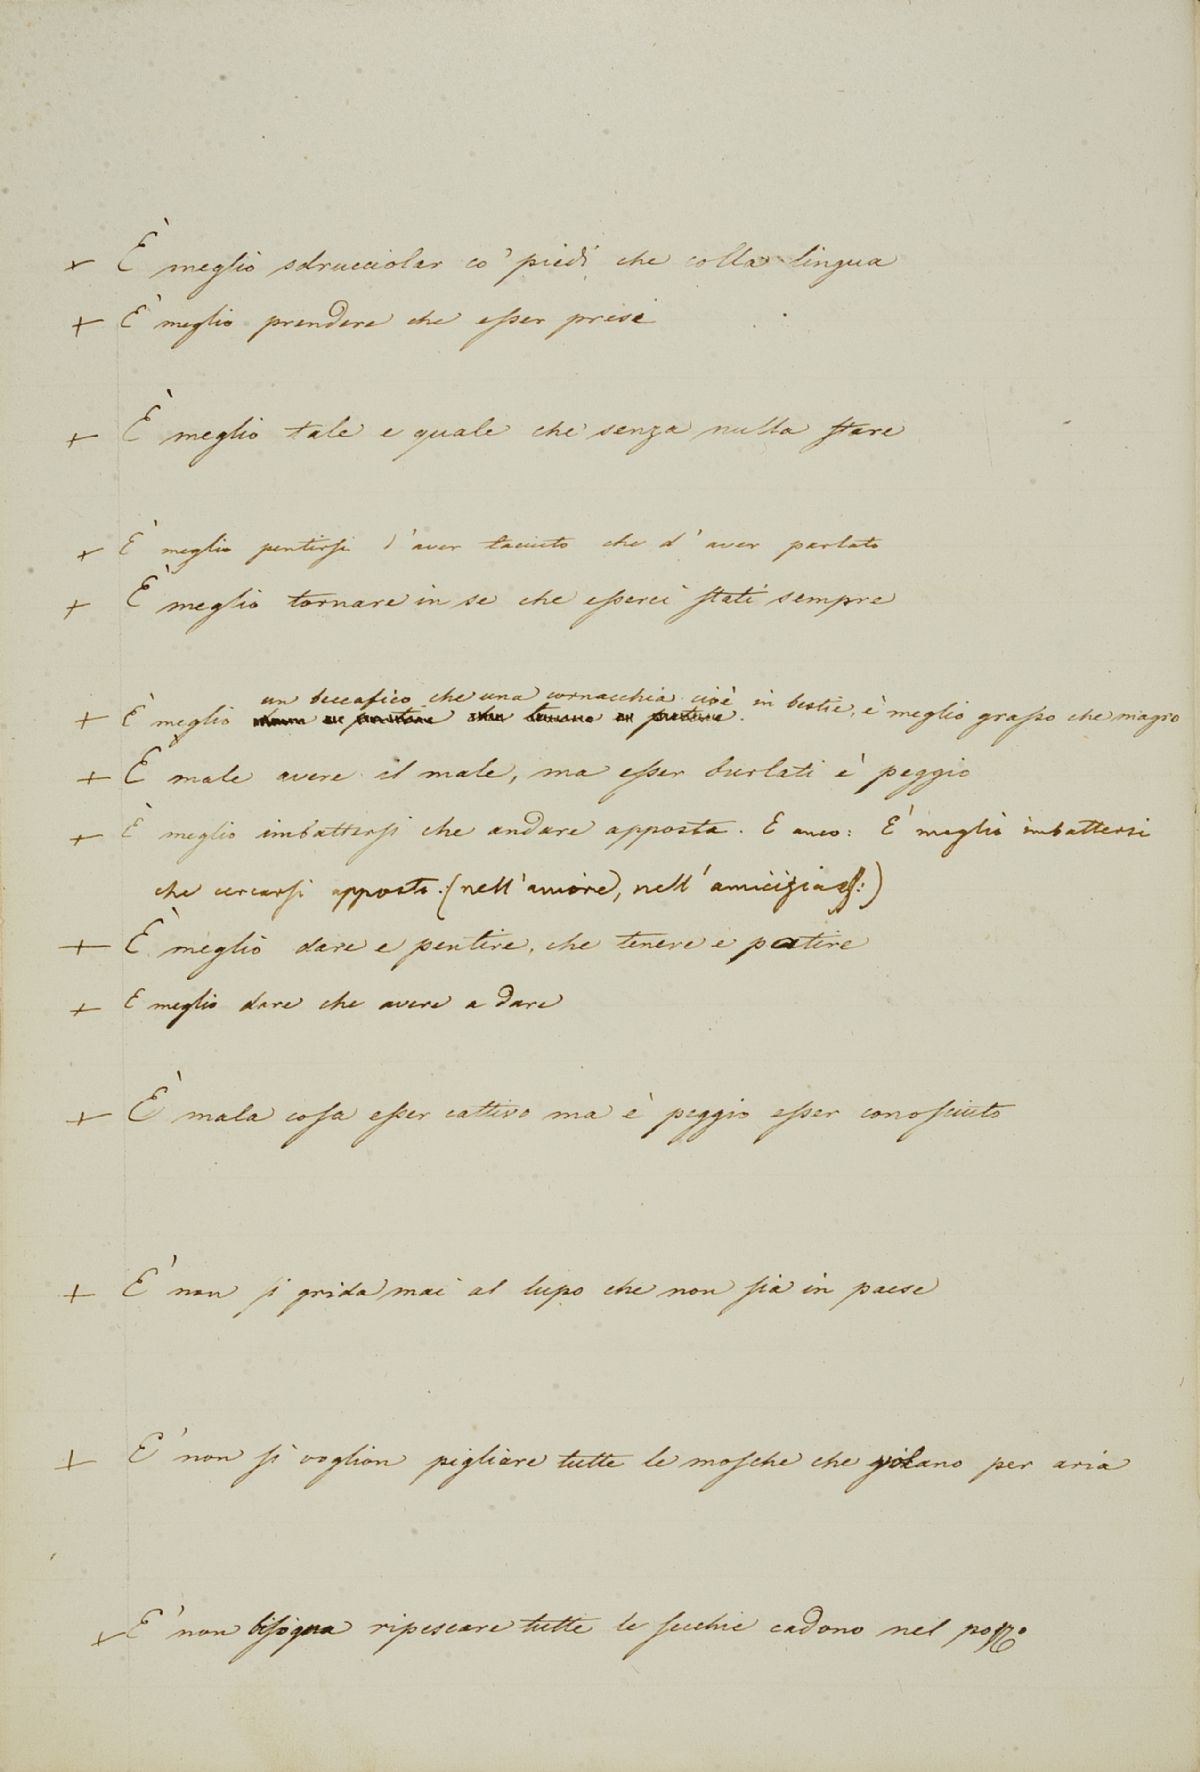 + È meglio sdrucciolar co' piedi che colla lingua
+ È meglio prendere che esser presi
+ È meglio tale e quale che senza nulla stare
+ È meglio pentirsi d'aver taciuto che d'aver parlato
+ È meglio tornare in se che esserci stati sempre
un beccafico che una cornacchia cioè in bestie, è meglio grasso che magro
+ È meglio
+ È male avere il male, ma esser burlati è peggio
+ È meglio imbattersi che andare apposta. E anco: È meglio imbattersi
che cercarsi apposta. (nell'amore, nell'amicizia)
+ È meglio dare e pentire, che tenere e patire
+ E meglio dare che avere a dare
+ È mala cosa esser cattivo ma è peggio esser conosciuto
+ E' non si grida mai al lupo che non sia in paese
+ E' non si voglion pigliare tutte le mosche che volano per aria
+ E' non bisogna ripescare tutte le secchie cadono nel pozzo